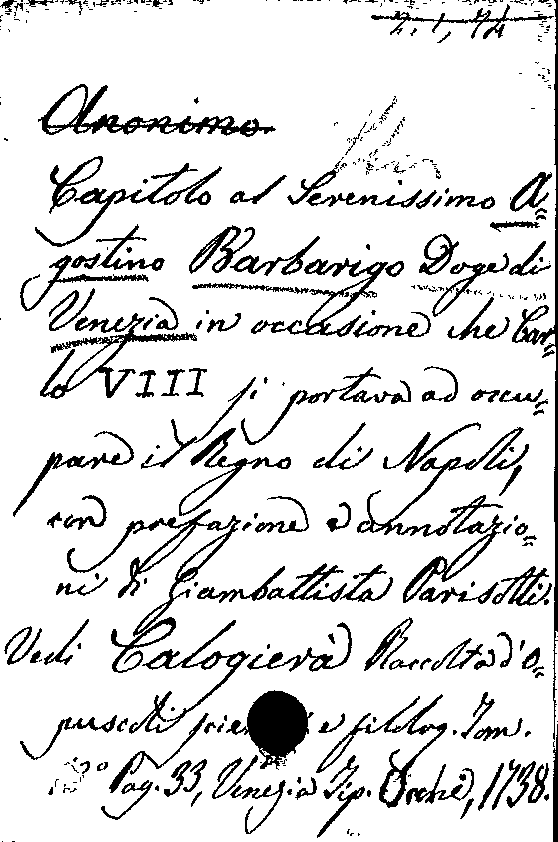 Anonimo.
Capitolo al Serenissimo A=
gostino Barbarigo Doge di
Venezia in occasione che Car=
lo VIII si portava ad occu=
pare il Regno di Napoli,
con prefazione e annotazio=
ni di Giambattista Parisotti.
Vedi Calogierà Raccolta d'O=
puscoli scie i e filolog. Tom.
Pag. 33, Venezia Tip. Occhi, 1738.